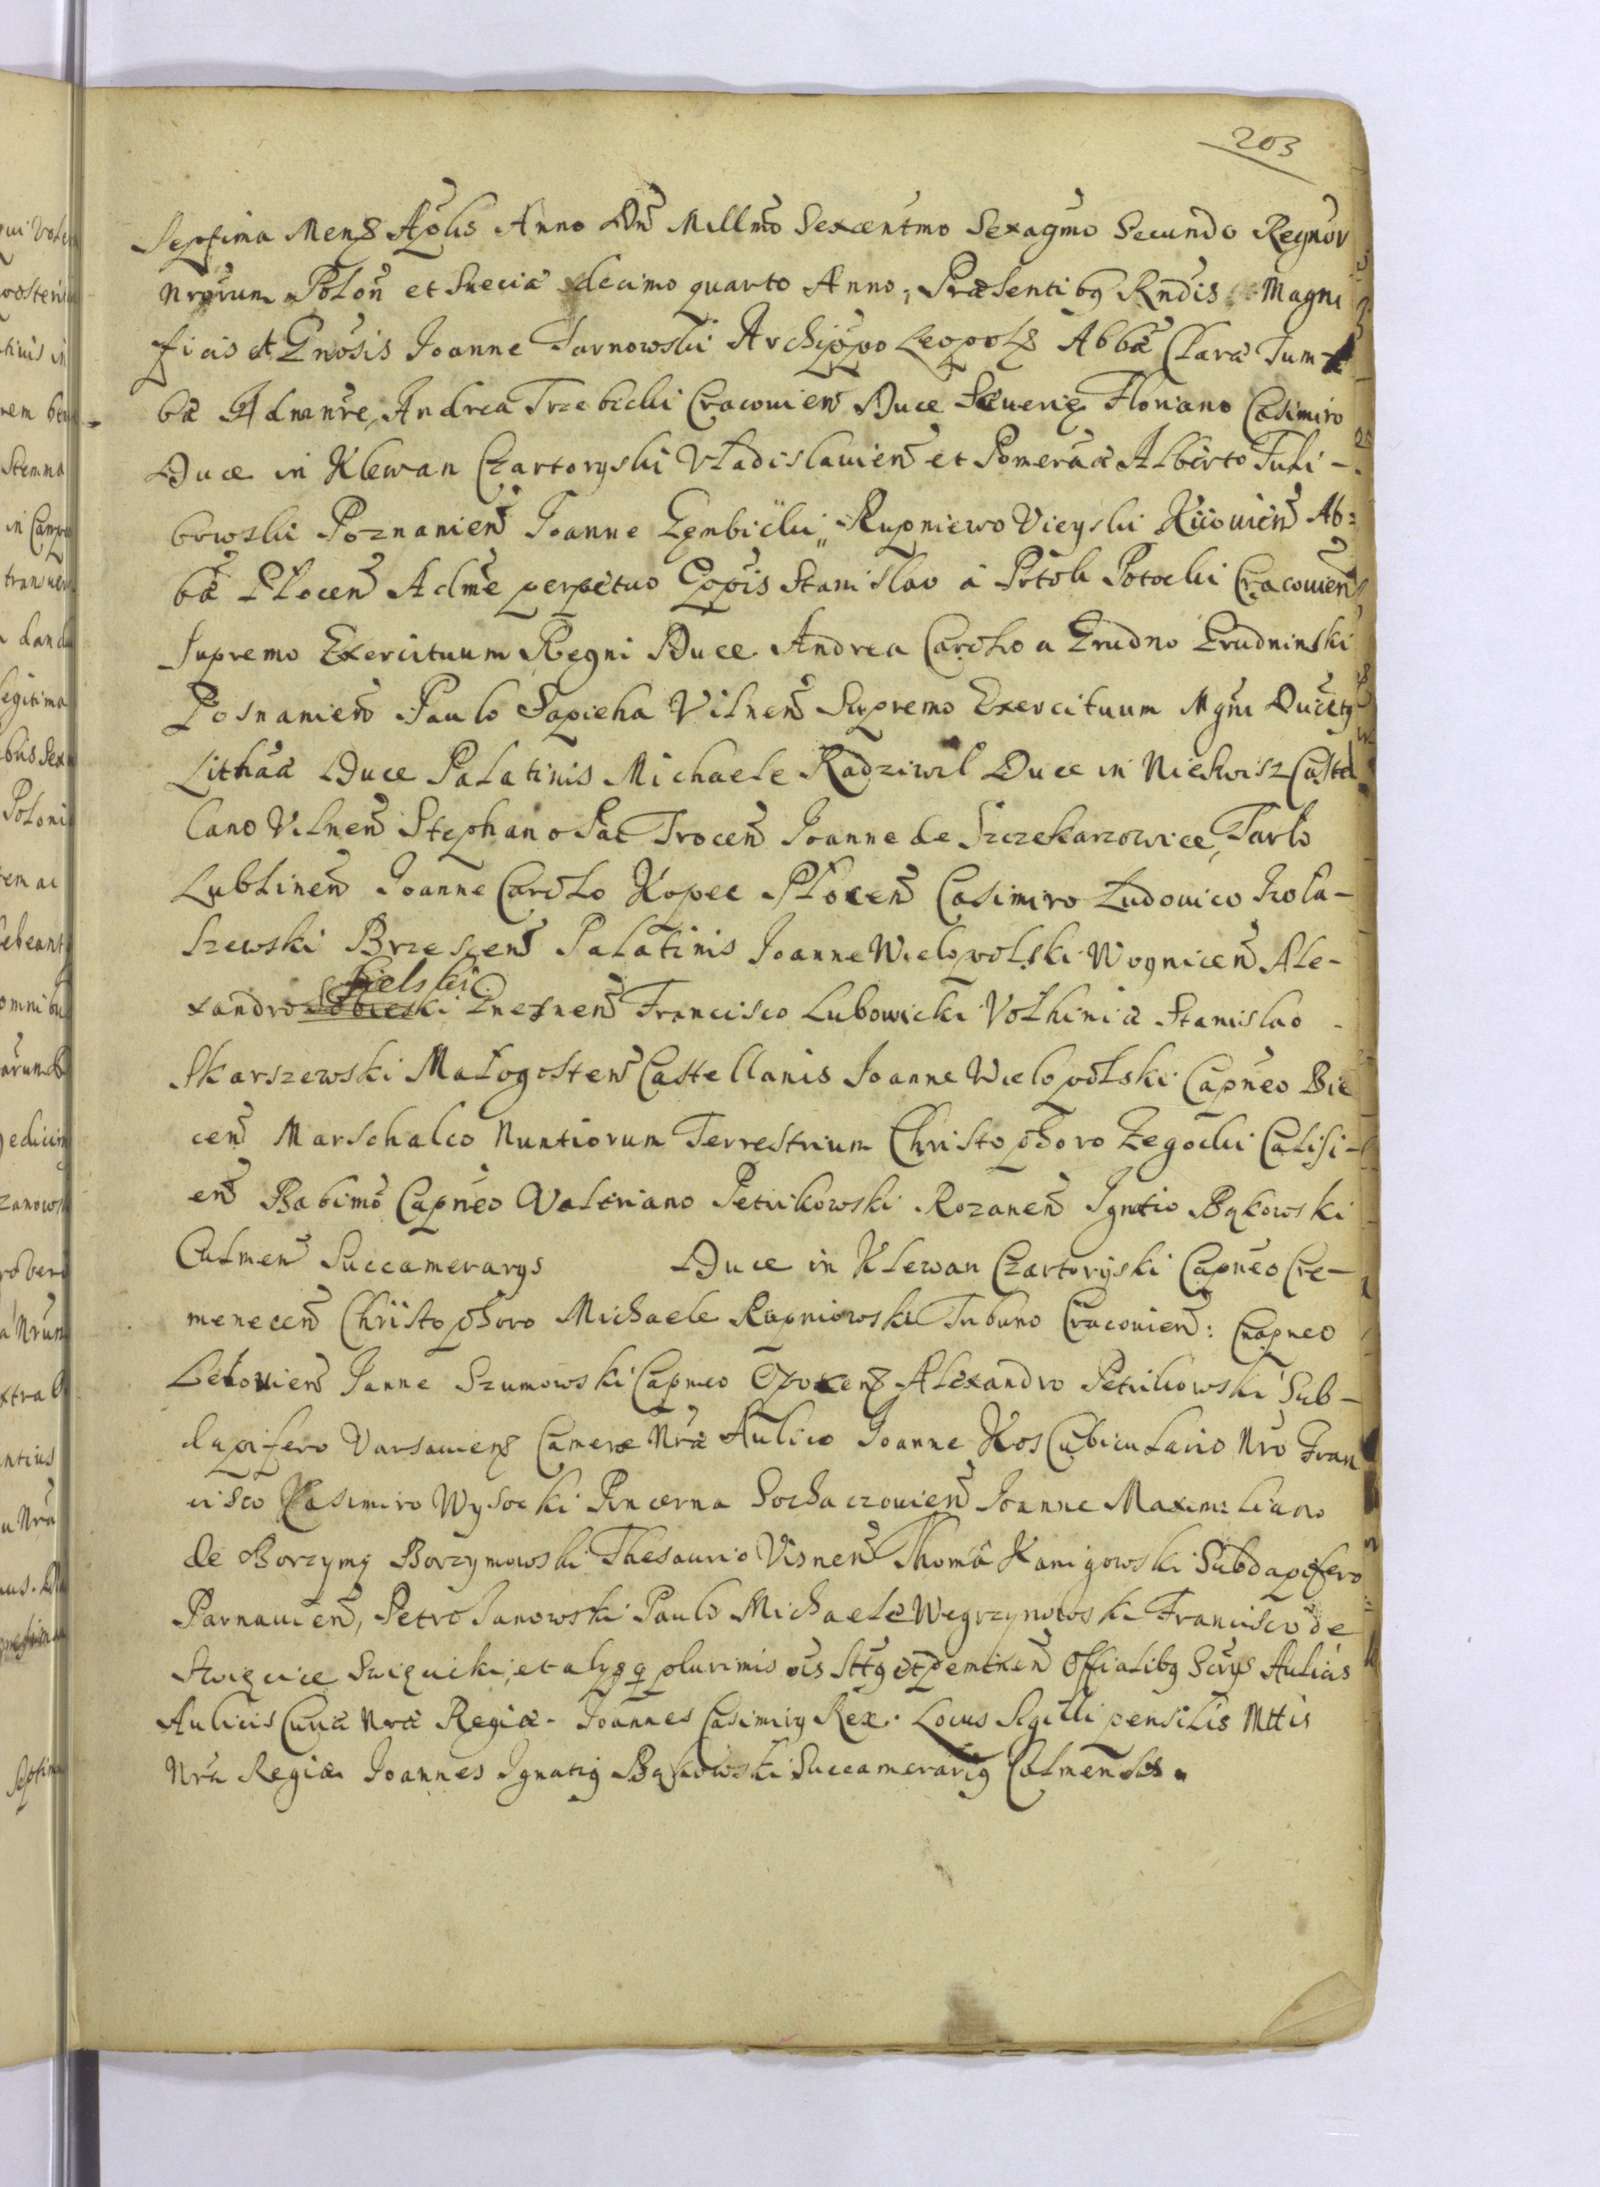 203
Septima Mens Aplis Anno Dni Millmo Sexcentmo Sexagmo Secundo Regnor
Nrorum Polon et Sueciæ decimo quarto Anno, Præsentibg Rndis Magni
ficis et Gnosis Joanne Tarnowski Archippo Leopols Abba Claræ Tum-
bæ Admnre, Andrea Trzebicki Cracouien Duce Seueriæ Floriano Casimiro
Duce in Klewan Czartoryski Vladislauien et Pomeraæ Alberto Tuli-
bowski Poznanien Joanne Gembicki Rupniewo Vieyski Kiiouien Ab=
ba Plocen Adme perpetuo Eppis Stanislao a Potok Potocki Cracouien
Supremo Exercituum Regni Duce Andrea Carolo a Grudno Grudninski
Posnanien Paulo Sapieha Vilnen Supremo Exercituum Mgni Ducatg
Lithaæ Duce Palatinis Michaele Radziwil Duce in Nieswisz Castel
lano Vilnen Stephano Pac Trocen Joanne de Szczekarzowice Tarlo
Lublinen Joanne Carolo Kopec Plocen Casimiro Ludouico Jrola-
szewski Brzescen Palatinis Joanne Wielopolski Woynicen Ale-
xandro Sielski Gnesnen Francisco Lubowicki Volhiniæ Stanislao
Skarszewski Malogosten Castellanis Joanne Wielopolski Capneo Bie
cen Marschalco Nuntiorum Terrestrium Christophoro Zegocki Calisi-
en Babimo Capneo Valeriano Petrikowski Rozanen Ignatio Bąkowski
Culmen Succamerarys Duce in Klewan Czartoryski Capneo Cre-
menecen Christophoro Michaele Rupniowski Tribuno Cracouien: Capneo
Lelouien Janne Szumowski Capneo Opocens Alexandro Petrikowski Sub-
dapifero Varsauiens Cameræ Nræ Aulico Joanne Kos Cubiculario Nro Fran
cisco Casimiro Wysocki Pincerna Sochaczouien Joanne Maximiliano
de Borzymy Borzymowski Thesaurio Visnen Thoma Kanigowski Subdapifero
Parnauien, Petro Janowski Paulo Michaele Wegrzynowski Francisco de
Swięcice Swięcicki, et alysq plurimis Offialibg Aulicis
Aulicis Curiæ Nræ Regiæ. Joannes Casimirg Rex. Locus Sigilli pensilis Mttis
Nræ Regiæ Joannes Ignatig Bąkowski Succamerarig Culmensis.